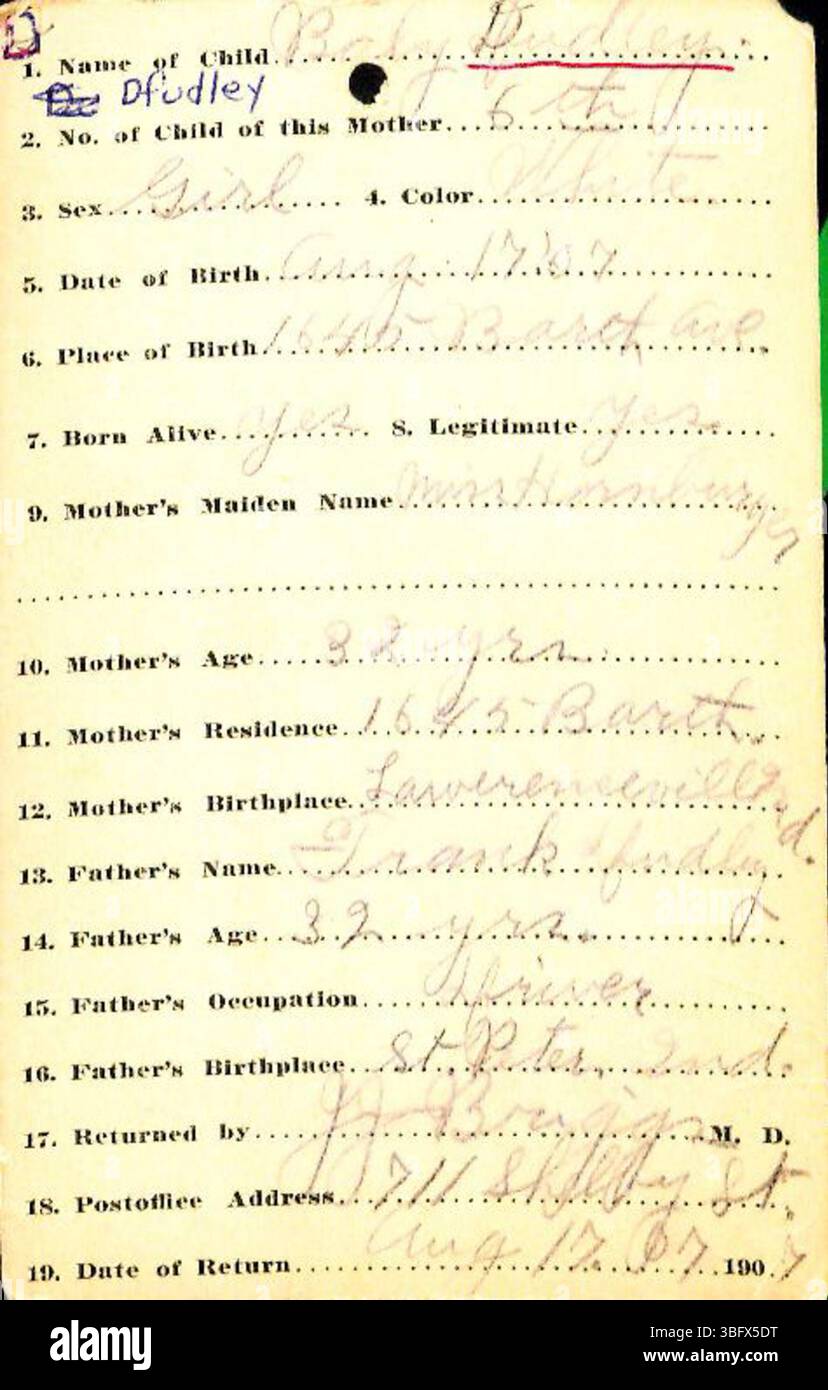 1. Name of Child Baby Dudley
Dfudley
2. No. of Child of this Mother 6th
3. Sex Girl 4. Color White
5. Date of Birth Aug 17 '07
6. Place of Birth 1645 Barth Ave
7. Born Alive yes 8. Legitimate yes
9. Mother's Maiden Name Miss Hornburger
10. Mother's Age 32 yrs.
11. Mother's Residence 1645 Barth
12. Mother's Birthplace Lawrenceville Ind.
13. Father's Name Frank Dfudley
14. Father's Age 32 yrs.
15. Father's Occupation Driver
16. Father's Birthplace St. Peter, Ind.
17. Returned by Briggs M. D.
18. Postoffice Address 711 Shelby St.
19. Date of Return Aug 17 07 1907
alamy
Image ID: 3BFX5DT
www.alamy.com